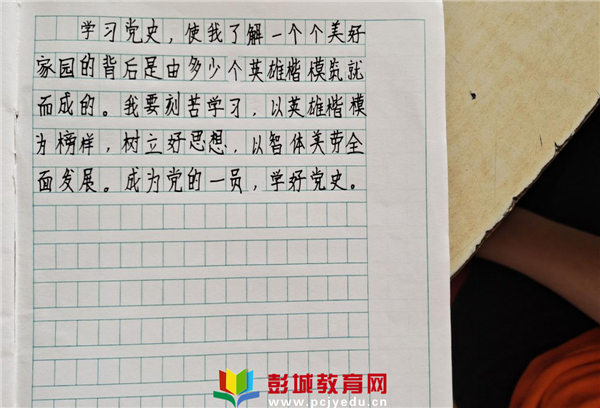 学习党史，使我了解一个个美好
家园的背后是由多少个英雄楷模筑就
而成的。我要刻苦学习，以英雄楷模
为榜样，树立好思想，以智体美劳全
面发展。成为党的一员，学好党史。
彭城教育网
www.pcjyedu.cn